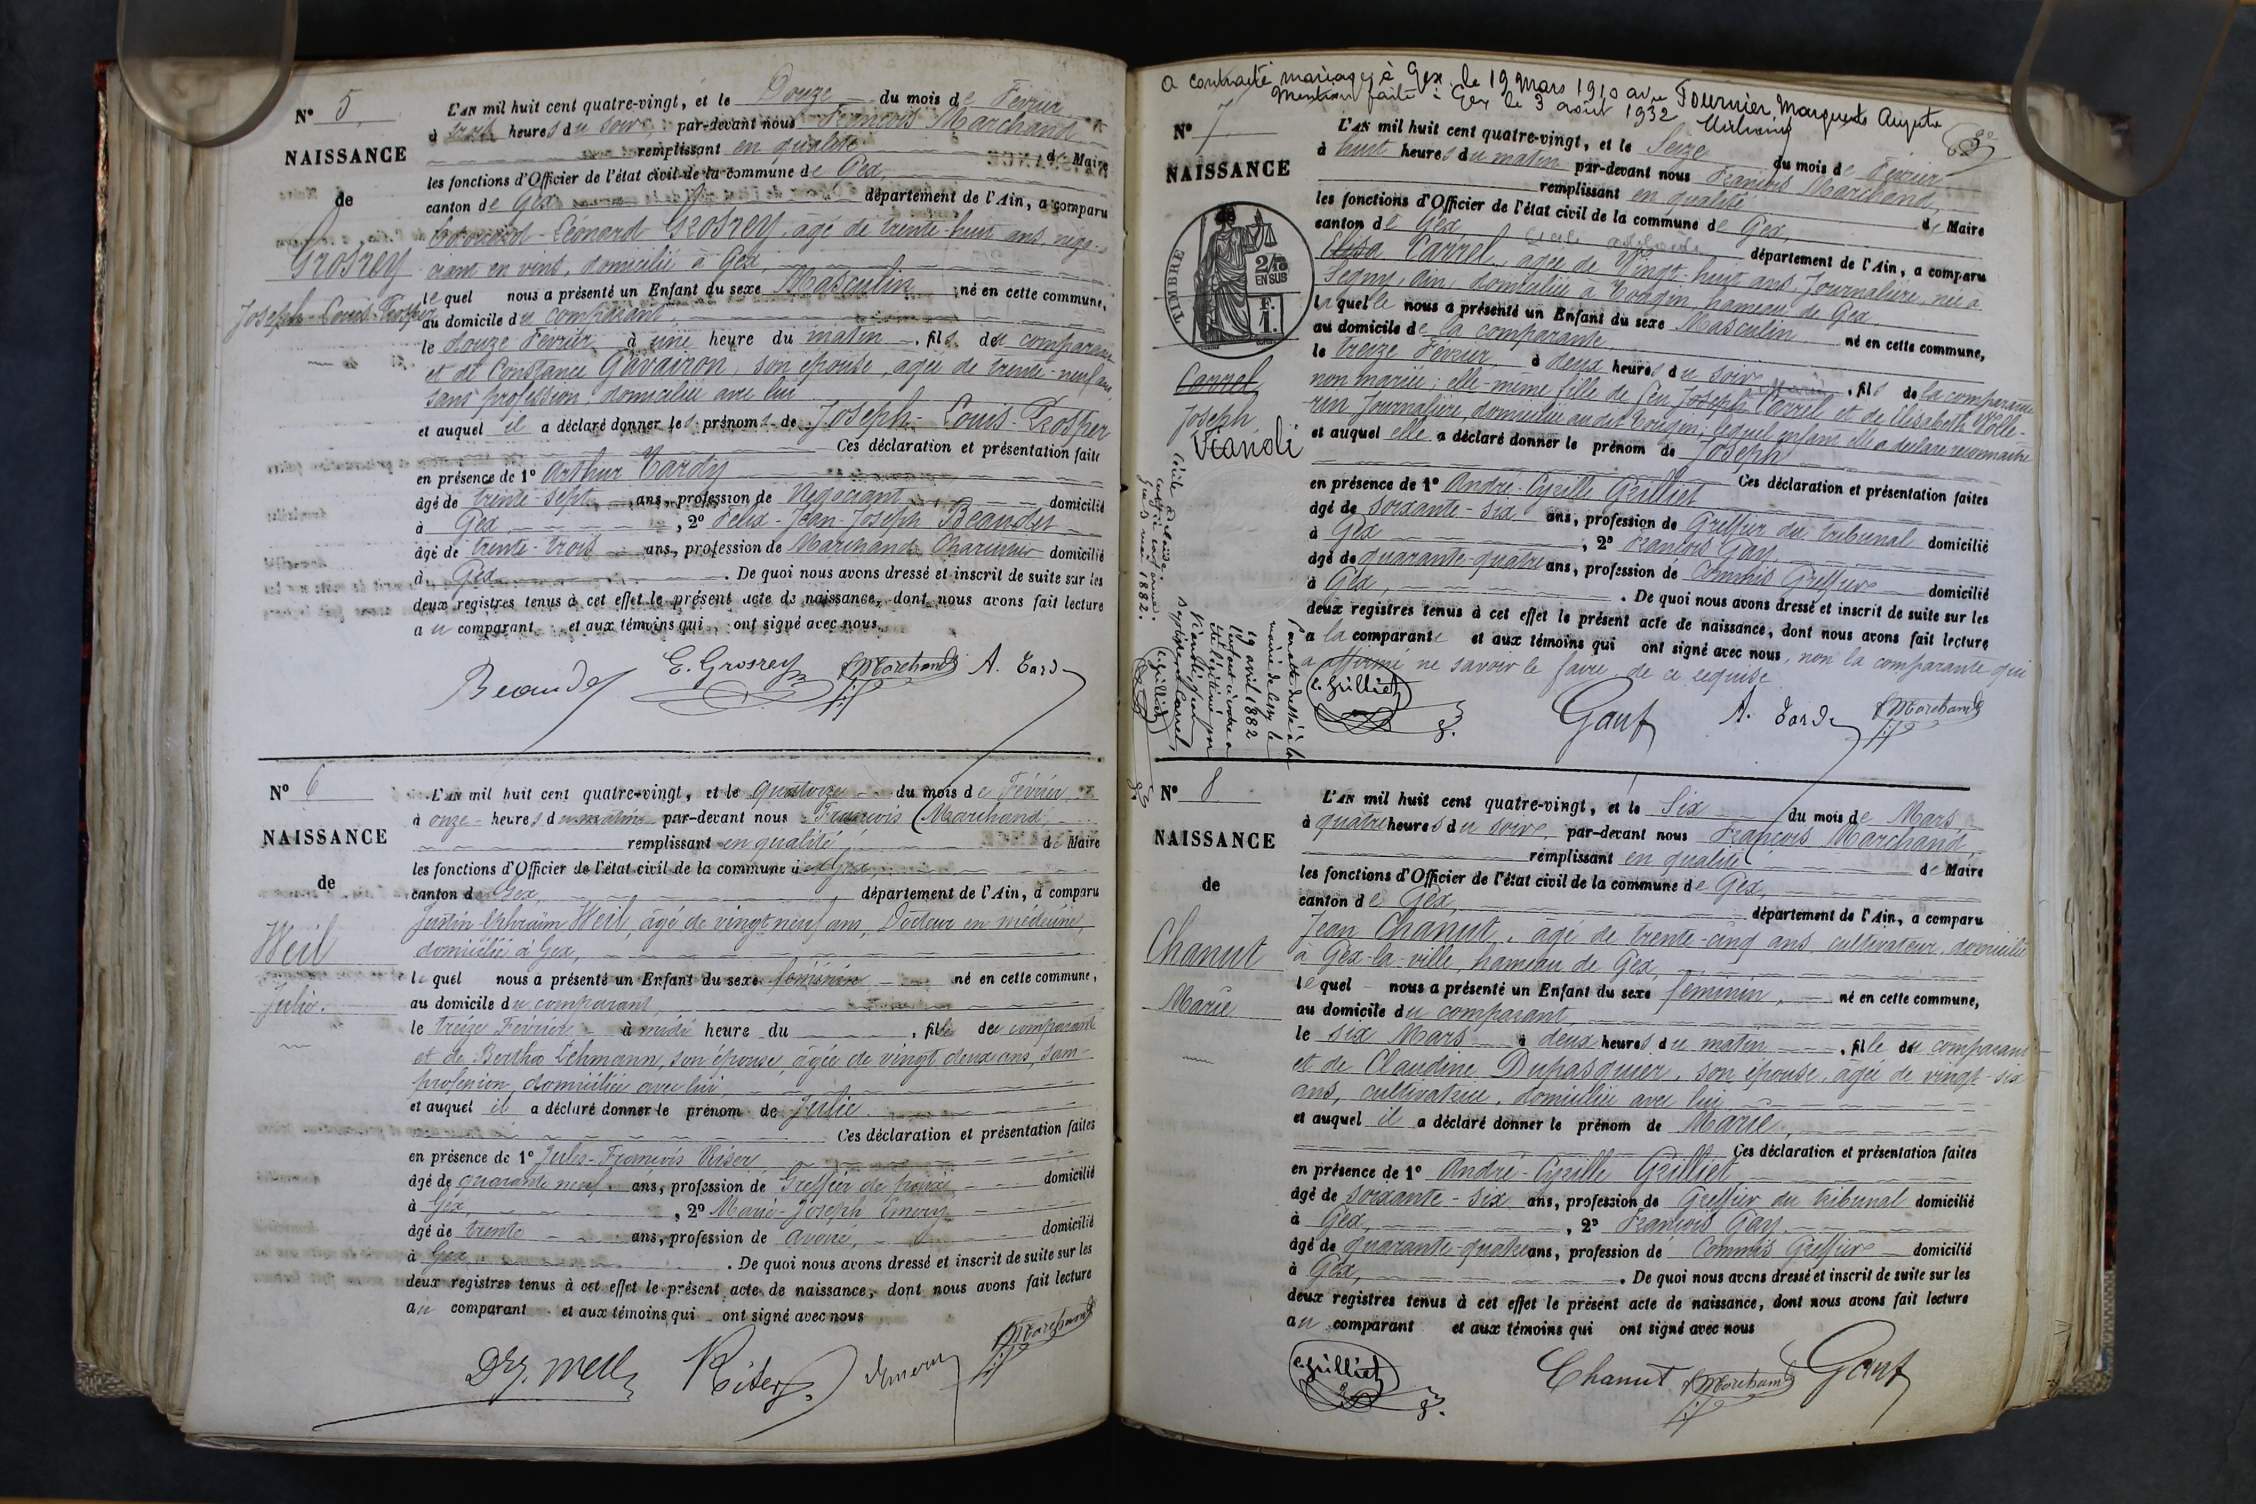 N° 5
NAISSANCE
de
Grosrey
Joseph-Louis-Prosper
L'AN mil huit cent quatre-vingt, et le Douze du mois de Février
à trois heures du soir, par-devant nous François Marchand
remplissant en qualité de Maire
les fonctions d'Officier de l'état civil de la commune de Gex,
canton de Gex département de l'Ain, a comparu
Léonard Grosrey, âgé de trente-huit ans, négo-
ciant en vins, domicilié à Gex,
lequel nous a présenté un Enfant du sexe Masculin né en cette commune,
au domicile du comparant,
le douze Février à une heure du matin, fils du comparant
et de Constance Gavairon, son épouse, âgée de trente-neuf ans,
sans profession, domiciliée avec lui
et auquel il a déclaré donner les prénoms de Joseph-Louis-Prosper
Ces déclaration et présentation faite
en présence de 1° Arthur Tardy
âgé de trente-sept ans, profession de Négociant domicilié
à Gex, 2° Félix-Jean-Joseph Beaudet
âgé de trente-trois ans, profession de Marchand domicilié
à Gex. De quoi nous avons dressé et inscrit de suite sur les
deux registres tenus à cet effet le présent acte de naissance, dont nous avons fait lecture
au comparant et aux témoins qui ont signé avec nous.
Beaudet E. Grosrey F Marchand A. Tardy
N° 6
NAISSANCE
de
Weil
Julie.
L'AN mil huit cent quatre-vingt, et le quatorze du mois de Février
à onze heures du matin par-devant nous François Marchand
remplissant en qualité de Maire
les fonctions d'Officier de l'état civil de la commune de Gex,
canton de Gex, département de l'Ain, a comparu
Justin Ephraïm Weil, âgé de vingt neuf ans, Docteur en médecine,
domicilié à Gex,
lequel nous a présenté un Enfant du sexe féminin né en cette commune,
au domicile du comparant,
le treize Février à midi heure du , fille du comparant
et de Bertha Lehmann, son épouse, âgée de vingt deux ans, sans
profession, domiciliée avec lui,
et auquel il a déclaré donner le prénom de Julie.
Ces déclaration et présentation faites
en présence de 1° Jules-François Riser
âgé de quarante neuf ans, profession de Greffier de paix domicilié
à Gex, 2° Marie-Joseph Emery
âgé de trente ans, profession de avoué, domicilié
à Gex. De quoi nous avons dressé et inscrit de suite sur les
deux registres tenus à cet effet le présent acte de naissance, dont nous avons fait lecture
au comparant et aux témoins qui ont signé avec nous
Dr J. Weill Riser Emery F Marchand
a contracté mariage à Gex, le 19 Mars 1910 avec Fournier Marguerite Augusta
Mention faite à Gex le 3 août 1932
N° 7
NAISSANCE
de
TIMBRE
2/10
EN SUS
F.
1.
Carrel
Joseph
Vianoli
L'AN mil huit cent quatre-vingt, et le Seize du mois de Février
à huit heures du matin par-devant nous François Marchand,
remplissant en qualité de Maire
les fonctions d'Officier de l'état civil de la commune de Gex,
canton de Gex, département de l'Ain, a comparu
Elisa Carrel, âgée de vingt-huit ans, Journalière, née à
Segny, Ain, domiciliée à Tougin, hameau de Gex,
laquelle nous a présenté un Enfant du sexe Masculin né en cette commune,
au domicile de la comparante,
le treize Février à deux heures du soir, fils de la comparante
non mariée; elle-même fille de feu Joseph Carrel et de Elisabeth
Journalière, domiciliée au dit Tougin; lequel enfant elle a déclaré reconnaître
et auquel elle a déclaré donner le prénom de Joseph
Ces déclaration et présentation faites
en présence de 1° André-Cyrille Grilliet
âgé de soixante-six ans, profession de Greffier du tribunal domicilié
à Gex, 2° François Gay
âgé de quarante-quatre ans, profession de Commis Greffier domicilié
à Gex, . De quoi nous avons dressé et inscrit de suite sur les
deux registres tenus à cet effet le présent acte de naissance, dont nous avons fait lecture
a la comparante et aux témoins qui ont signé avec nous, non la comparante qui
a affirmé ne savoir le faire de ce requise
c. Grilliet Gay A. Tardy F Marchand
mairie de Cessy le
19 avril 1882
l'enfant ci-contre a
été légitimé par
N° 8
NAISSANCE
de
Chanut
Marie
L'AN mil huit cent quatre-vingt, et le Six du mois de Mars
à quatre heures du soir, par-devant nous François Marchand,
remplissant en qualité de Maire
les fonctions d'Officier de l'état civil de la commune de Gex,
canton de Gex, département de l'Ain, a comparu
Jean Chanut, âgé de trente-cinq ans, cultivateur, domicilié
à Gex-la-ville, hameau de Gex,
lequel nous a présenté un Enfant du sexe féminin, né en cette commune,
au domicile du comparant
le six Mars à deux heures du matin, fille du comparant
et de Claudine Dupasquier, son épouse, âgée de vingt-six
ans, cultivatrice, domiciliée avec lui
et auquel il a déclaré donner le prénom de Marie,
Ces déclaration et présentation faites
en présence de 1° André-Cyrille Grilliet
âgé de soixante-six ans, profession de Greffier du tribunal domicilié
à Gex, 2° François Gay.
âgé de quarante-quatre ans, profession de Commis Greffier domicilié
à Gex, . De quoi nous avons dressé et inscrit de suite sur les
deux registres tenus à cet effet le présent acte de naissance, dont nous avons fait lecture
au comparant et aux témoins qui ont signé avec nous
c. Grilliet Chanut F Marchand Gay